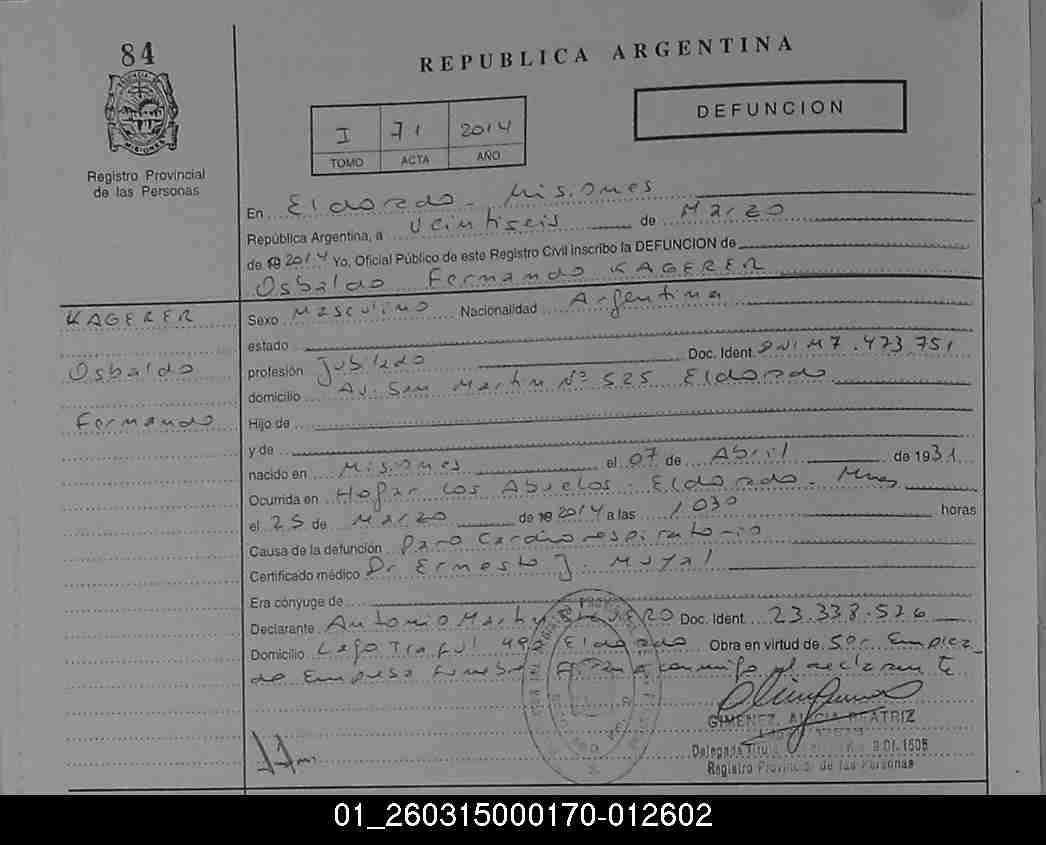 84
REPUBLICA ARGENTINA
DEFUNCION
I 71 2014
TOMO ACTA AÑO
Registro Provincial
de las Personas
En Eldorado - Misiones
República Argentina, a veintiseis de Marzo
de 2014 Yo, Oficial Público de este Registro Civil inscribo la DEFUNCION de
Osbaldo Fernando KAGERER
KAGERER
Osbaldo
Fernando
Sexo Masculino Nacionalidad Argentina
estado
profesión Jubilado Doc. Ident. DNI M7.473.751
domicilio Av. San Martin Nº 525 Eldorado
Hijo de
y de
nacido en Misiones el 07 de Abril de 1931
Ocurrida en Hogar Los Abuelos - Eldorado - Mnes
el 25 de Marzo de 2014 a las 1030 horas
Causa de la defunción Paro Cardiorespiratorio
Certificado médico Dr Ernesto J.
Era cónyuge de
Declarante Antonio Doc. Ident. 23.338.526
Domicilio Lago Traful Eldorado Obra en virtud de Ser Emplea
do Empresa Funebre conmigo el declarante
GIMENEZ, ALICIA BEATRIZ
Delegada
Registro Provincial de las Personas
01_260315000170-012602